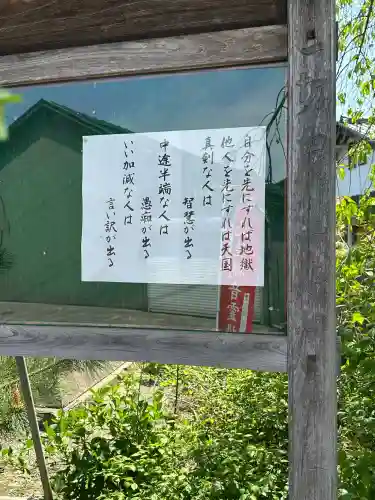 自分を先にすれば地獄
他人を先にすれば天国
真剣な人は
智慧が出る
中途半端な人は
愚痴が出る
いい加減な人は
言い訳が出る